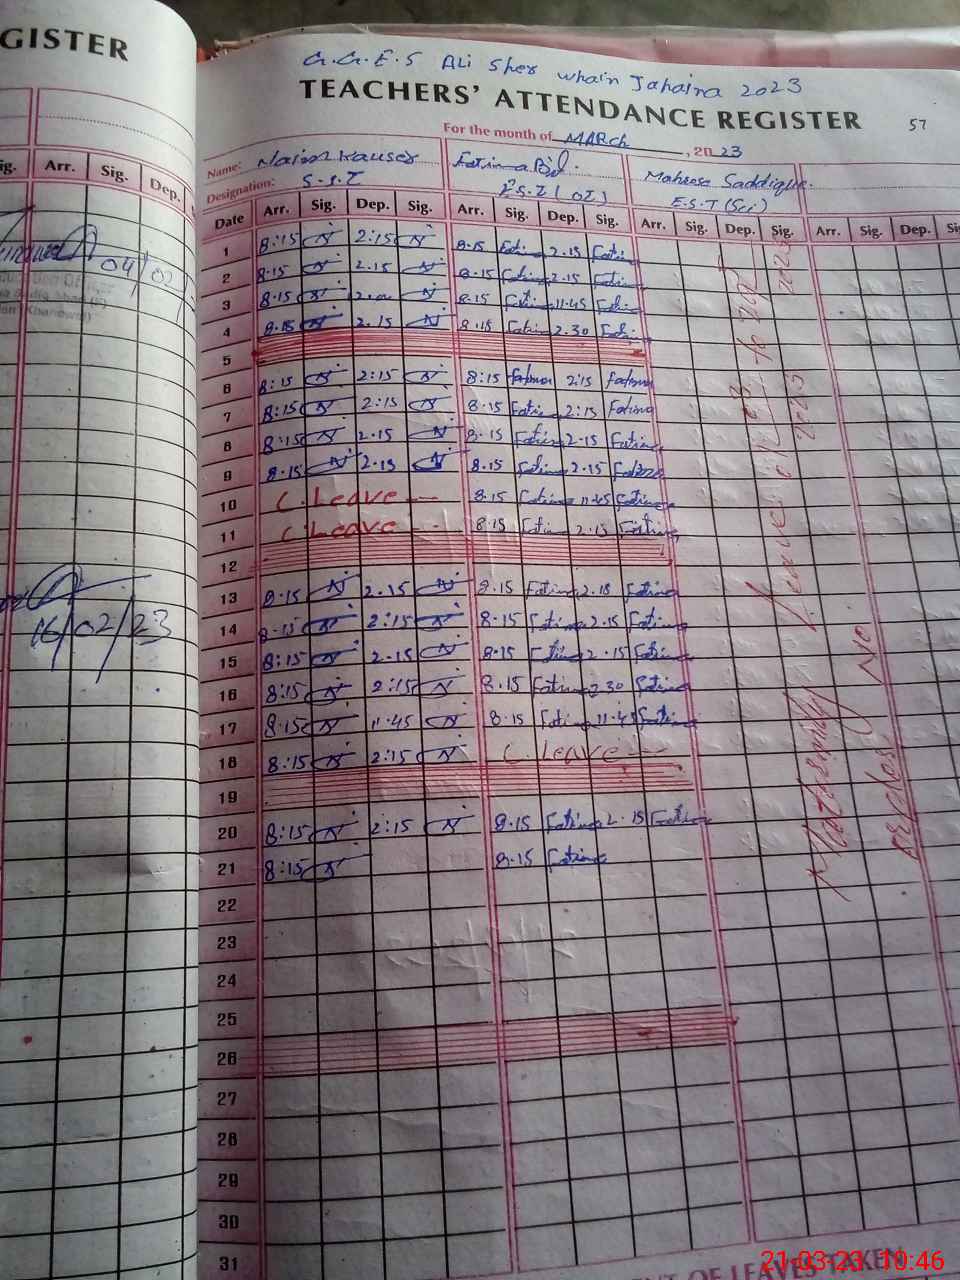 GISTER
G.G.E.S Ali Sher whain Jahaina 2023
TEACHERS' ATTENDANCE REGISTER 57
For the month of MARCH, 2023
Name: Kauser Fatima Bibi Mahrose Saddique.
Designation: S.S.T E.S.T (OT) E.S.T (Sci)
Arr. Sig. Dep.
Date Arr. Sig. Dep. Sig. Arr. Sig. Dep. Sig. Arr. Sig. Dep. Sig. Arr. Sig. Dep.
1 8:15 N 2:15 N 8.15 Fatima 2.15 Fatima
2 8.15 N 2.15 N 8.15 Fatima 2.15 Fatima
3 8:15 N N 8.15 Fatima 11.45 Fatima
4 8.15 N 2.15 N 8.15 Fatima 2.30 Fatima
5
6 8:15 N 2:15 N 8:15 Fatima 2:15 Fatima
7 8:15 N 2:15 N 8.15 Fatima 2:15 Fatima
8 8:15 N 2.15 N 8.15 Fatima 2.15 Fatima
9 8.15 N 2.15 N 8.15 Fatima 2.15 Fatima
10 C. Leave 8.15 Fatima 11.45 Fatima
11 C. Leave 8.15 Fatima 2:15 Fatima
12
13 8.15 N 2.15 N 8.15 Fatima 2.15 Fatima
14 8.15 N 2:15 N 8.15 Fatima 2.15 Fatima
15 8:15 N 2.15 N 8.15 Fatima 2.15 Fatima
16 8:15 N 2:15 N 8.15 Fatima 2.30 Fatima
17 8:15 N 11.45 N 8.15 Fatima 11.45 Fatima
18 8:15 N 2:15 N C. Leave
19
20 8:15 N 2:15 N 8.15 Fatima 2.15 Fatima
21 8:15 N 8.15 Fatima
22
23
24
25
26
27
28
29
30
31
Maternity leaves
to
2023
order No
04/02
16/02/23
OF LEAVES TAKEN
21-03-23 10:46